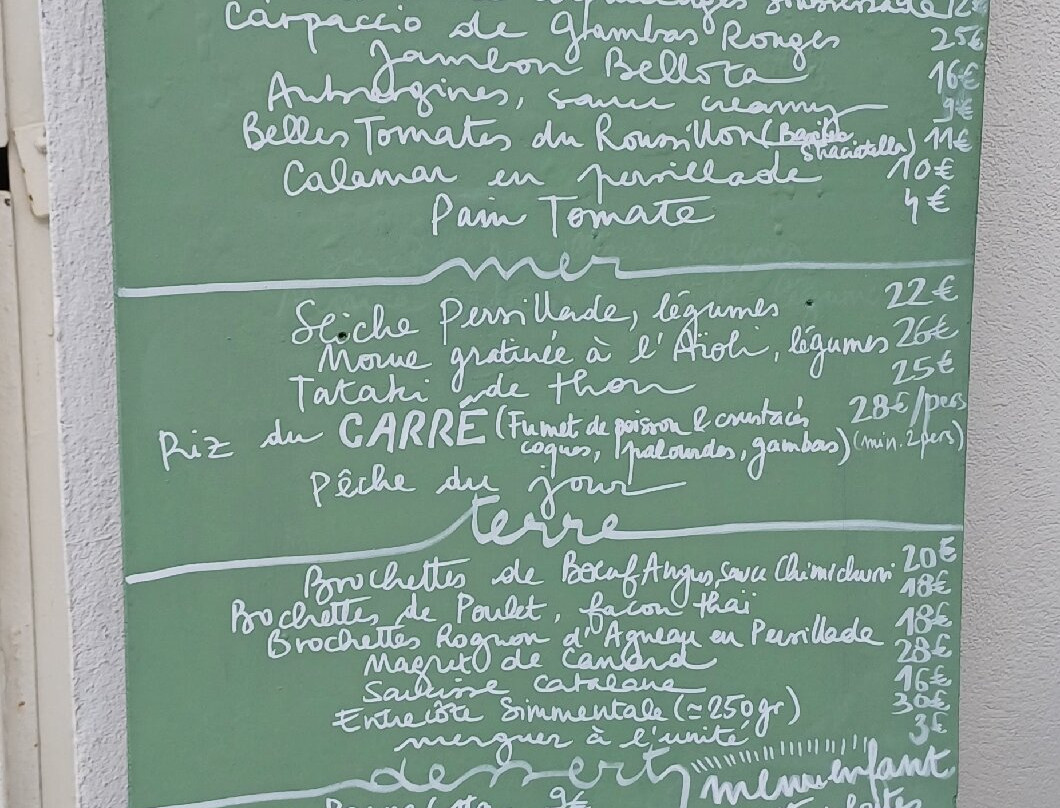 12€
Carpaccio de Gambas Rouges 25€
Jambon Bellota 16€
Aubergines, sauce creamy 9€
Belles Tomates du Roussillon (Basilic Straciatella) 11€
Calamar en persillade 10€
Pain Tomate 4€
mer
Seiche Persillade, légumes 22€
Morue gratinée à l'Aïoli, légumes 26€
Tataki de thon 25€
Riz du CARRÉ (Fumet de poisson & crustacés 28€/pers
coques, palourdes, gambas) (min. 2 pers)
Pêche du jour
terre
Brochettes de Bœuf Angus, sauce Chimichurri 20€
Brochettes de Poulet, façon thaï 18€
Brochettes Rognon d'Agneau en Persillade 18€
Magret de Canard 28€
Saucisse catalane 16€
Entrecôte Simmentale (≃250gr) 30€
merguez à l'unité 3€
desserts menu enfant
9€